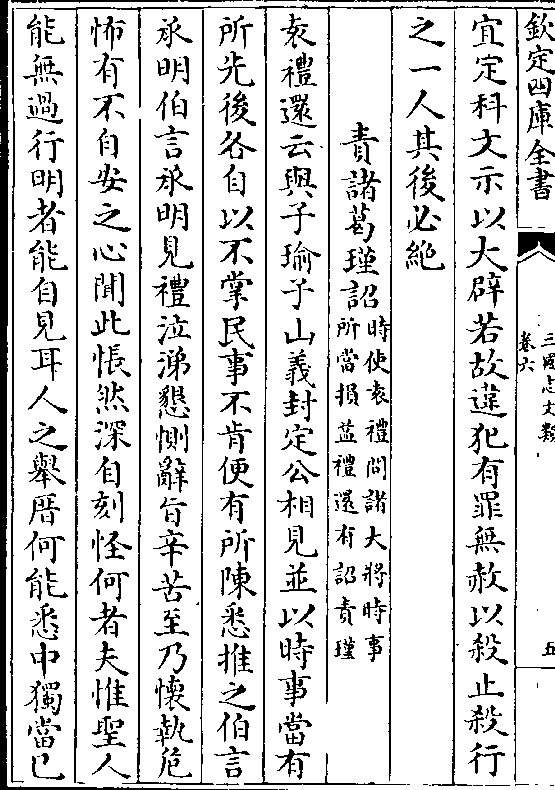 欽定四庫全書
三國志文類
卷六
五
宜定科文示以大辟若故違犯有罪無赦以殺止殺行
之一人其後必絶
責諸葛瑾詔
時使袁禮問諸大將時事
所當損益禮還有詔責瑾
袁禮還云與子瑜子山義封定公相見並以時事當有
所先後各自以不掌民事不肯便有所陳悉推之伯言
承明伯言承明見禮泣涕懇惻辭旨辛苦至乃懷執危
怖有不自安之心聞此悵然深自刻怪何者夫惟聖人
能無過行明者能自見耳人之舉厝何能悉中獨當已